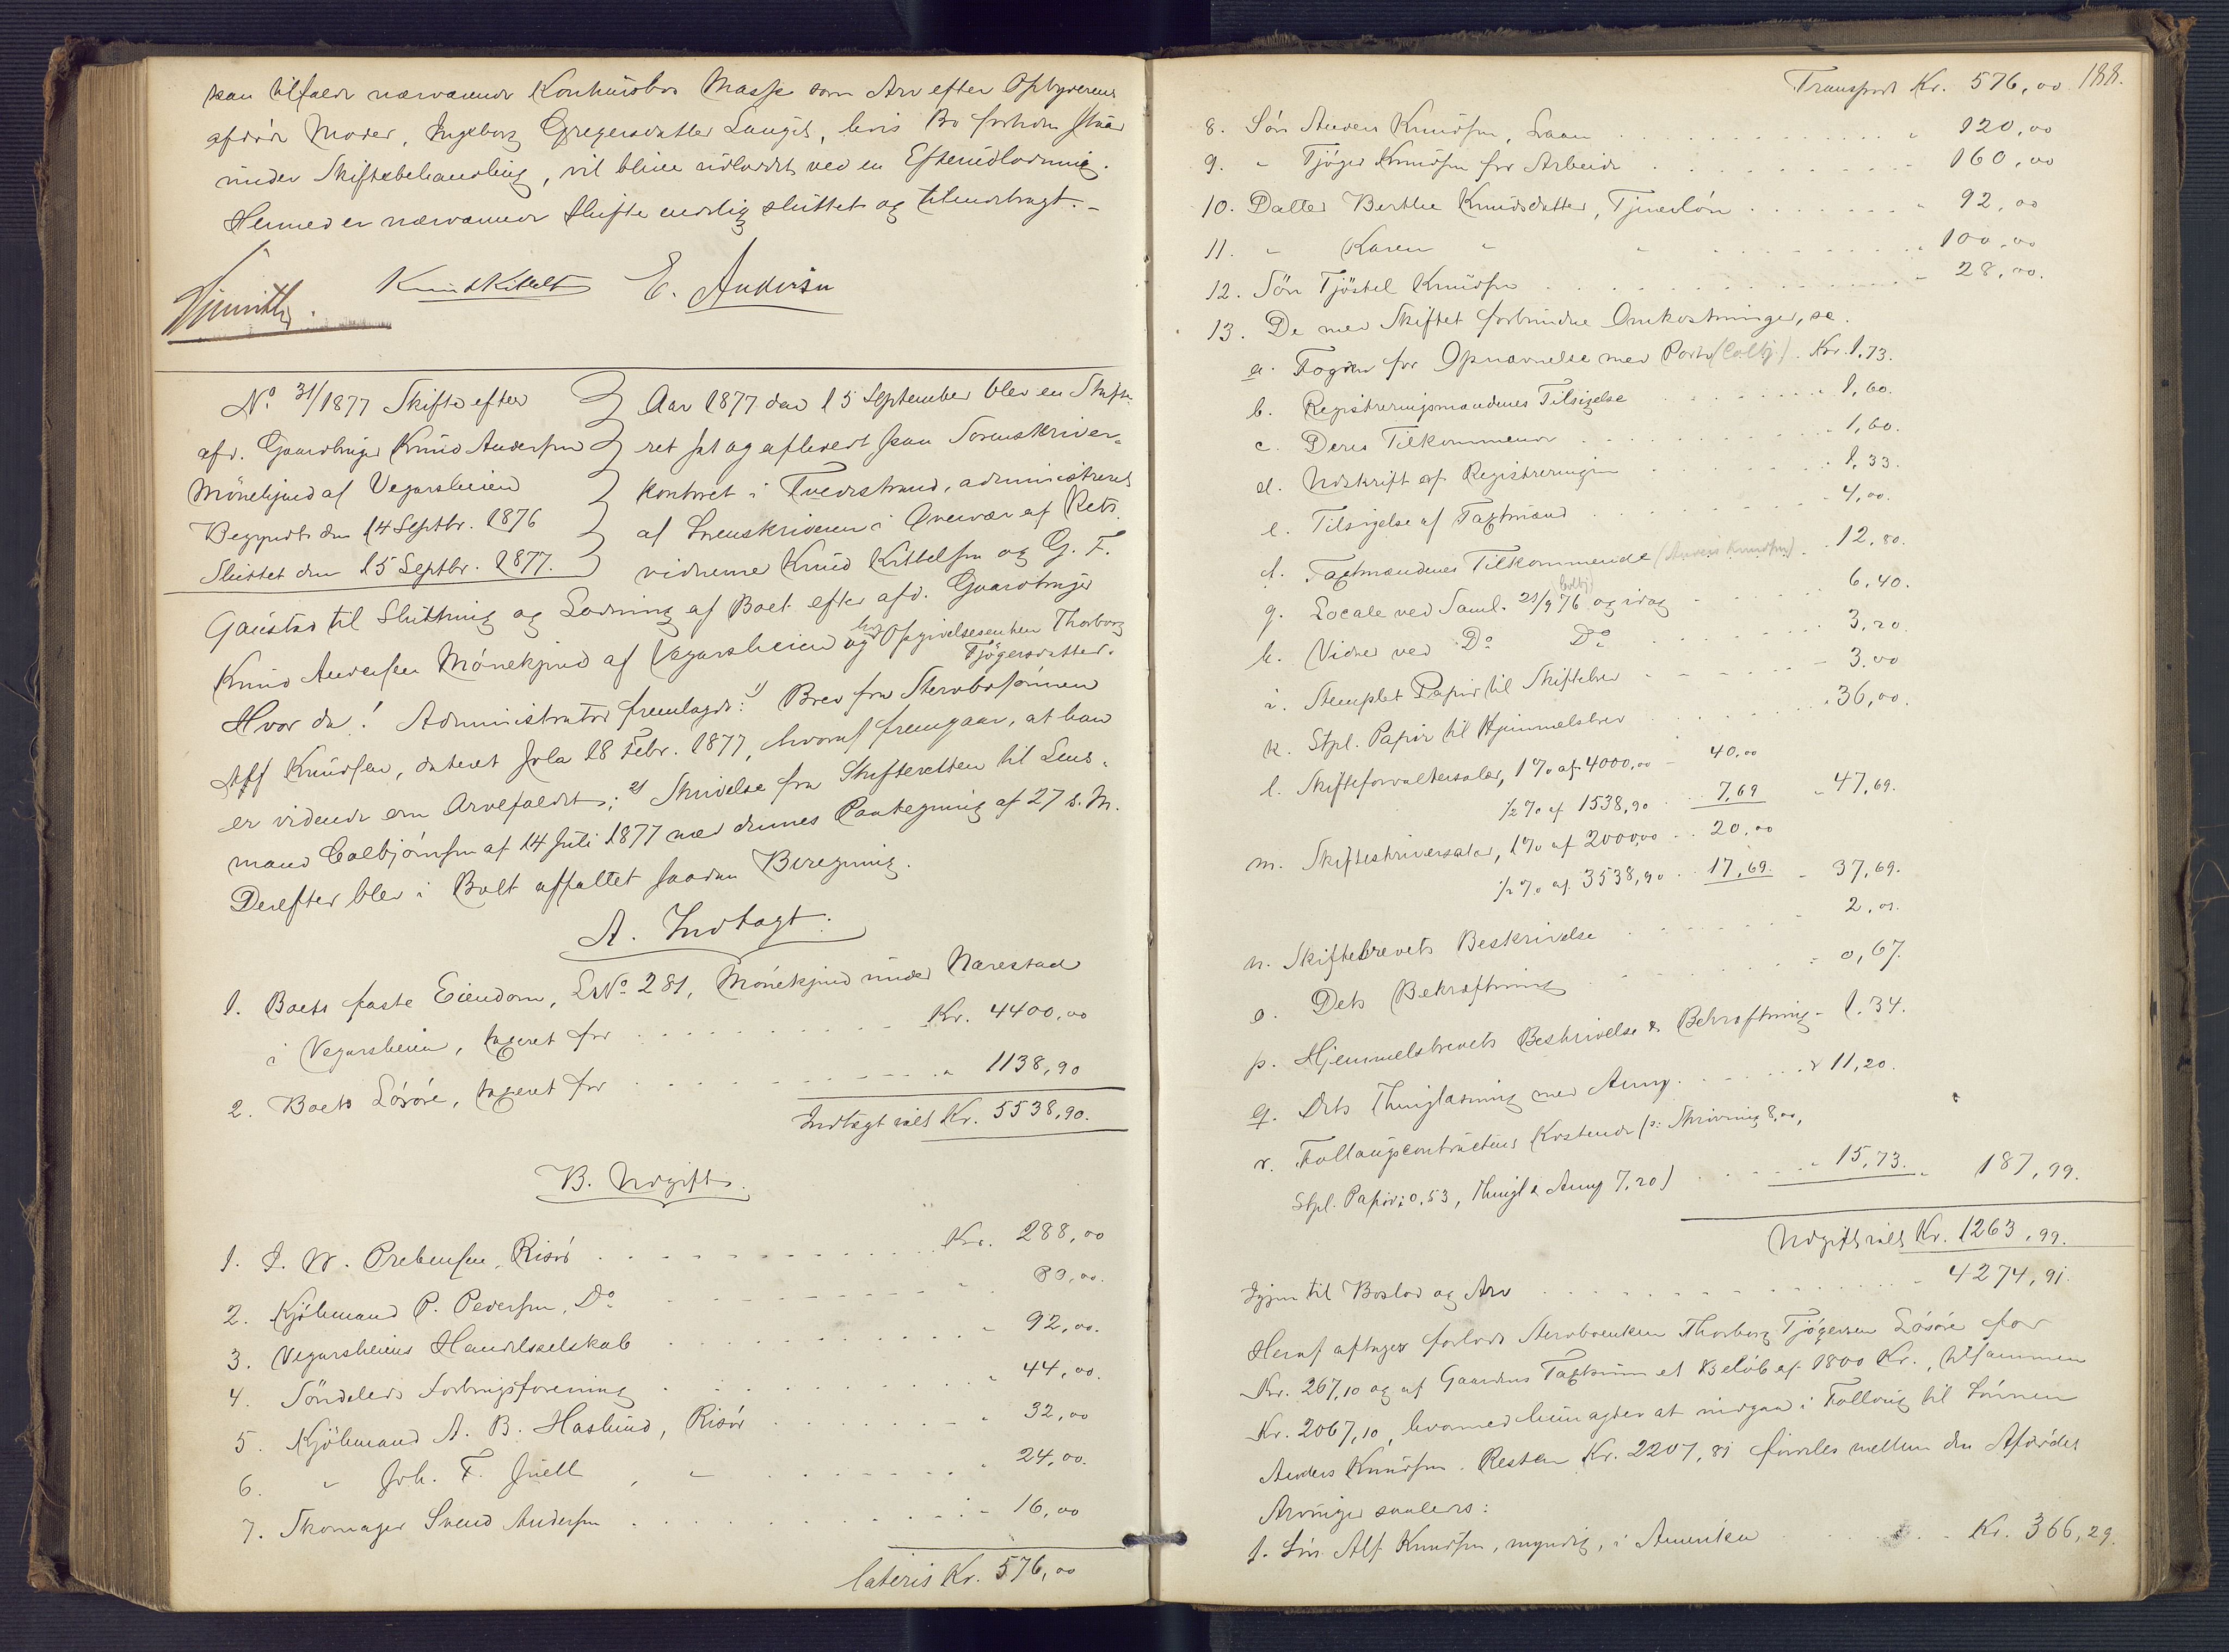 kan tilfalde nærværende Konkursbos Masse som Arv efter Opbyderens
afdøde Moder, Ingeborg Gregersdatter Lauget, hvis Bo forhen staar
under Skiftebehandling, vil blive udloddet ved en Efterudlodning.
Hermed er nærværende Skifte endelig sluttet og tilendebragt.-
Knud Kittels E. Andersen
No. 31/1877 Skifte efter
afd. Gaardbruger Knud Andersen
Mönekjend af Vegarsheien
Begyndt den 14 Septbr. 1876
Sluttet den 15 Septbr. 1877.
Aar 1877 den 15 September blev en Skifte-
ret sat og afholdt paa Sorenskriver-
kontoret i Tvedestrand, administreret
af Sorenskriveren i Overvær af Rets
vidnerne Knud Kittelsen og G. F.
Gaustad til Slutning og Lodning af Boet efter afd. Gaardbruger
Knud Andersen Mónekjend af Vegarsheien og hos Opgivelsesenken Thorborg
Tjögersdatter.
Hvor da! Administrator fremlagde: 1) Brev fra Sterbosönnen
Alf Knudsen, dateret Jola 18 Febr. 1877, hvoraf fremgaar, at han
er vidende om Arvefaldet; 2) Skrivelse fra Skifteretten til Lens-
mand Colbjörnsen af 14 Juli 1877 med dennes Paategning af 27 s. M.
Derefter blev i Boet affattet saadan Beregning.
A. Indtægt:
1. Boets faste Eiendom, LNo. 281, Mónekjend under Nærestad
i Vegarsheien, taxeret for . . . Kr. 4400,00
2. Boets Lósóre, taxeret for . . . " 1138,90
Indtægt ialt Kr. 5538,90.
B. Udgift.
1. I. W. Prebensen, Risör . . . Kr. 288,00
2. Kjöbmand P. Pedersen, Do. . . . " 80,00.
3. Vegarsheiens Handelsselskab . . . " 92,00.
4. Söndeleds Forbrugsforening . . . " 44,00.
5. Kjöbmand A. B. Haslund, Risör . . . " 32,00
6. " Joh. F. Juell , " . . . " 24,00.
7. Skomager Svend Andersen . . . " 16,00
lateris Kr. 576,00
188.
Transport Kr. 576,00
8. Sön Anders Knudsen, Laan . . . " 120,00
9. " Tjöger Knudsen for Arbeide . . . " 160,00
10. Datter Berthe Knudsdatter, Tjenerlön . . . " 92,00
11. " Karen " " . . . " 100,00
12. Sön Tjöstel Knudsen . . . " 28,00.
13. De med Skiftet forbundne Omkostninger, se.
a. Fogden for Opnævnelse med Porto (Colbj.) . Kr. 1.73.
b. Registreringsmændenes Tilsigelse . . . " 1,60.
c. Deres Tilkommende . . . " 1,60.
d. Udskrift af Registreringen . . . " 1,33.
e. Tilsigelse af Taxtmænd . . . " 4,00.
f. Taxtmændenes Tilkommende (Anders Knudsen) . " 12,80.
g. Locale ved Saml. 21/9 76 og idag . . . 6,40.
Colbj
h. Vidner ved Do. Do. . . . 3,20.
i. Stemplet Papir til Skiftebrev . . . " 3.00
k. Stpl. Papir til Hjemmelsbrev . . . " 36,00.
l. Skifteforvaltersalær, 1 % af 4000,00 - 40,00
1/2 % af 1538,90 . . 7,69 " 47,69.
m. Skifteskriversalær, 1 % af 2000,00 . . 20,00
1/2 % af 3538,90 . . 17,69. " 37,69.
n. Skiftebrevets Beskrivelse . . . " 2,00.
o. Dets Bekræftning . . . " 0,67.
p. Hjemmelsbrevets Beskrivelse & Bekræftning - 1.34.
q. Dets Thinglæsning med Anmg. . . . " 11,20.
r. Follaugscontractens Kostende (o: Skrivning 8,00,
Stpl. Papir: 0,53, Thingl & Anmg 7,20) . . . " 15,73. " 187,99.
Udgift ialt Kr. 1263,99.
Igjen til Boslod og Arv . . . " 4274,91.
Heraf aftages forlods Sterboenken Thorborg Tjögersen Lósóre for
Kr. 267,10 og af Gaardens Taxtsum et Belöb af 1800 Kr., tilsammen
Kr. 2067,10, hvormed hun agter at indgaa i Follaug til Sönnen
Anders Knudsen. Resten Kr. 2207,81 fordeles mellem den Afdödes
Arvinger saaledes:
1. Sön Alf Knudsen, myndig, i Amerika . . . Kr. 366,29.